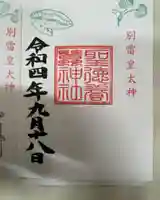 別雷皇太神
別雷皇太神
令和四年九月十八日